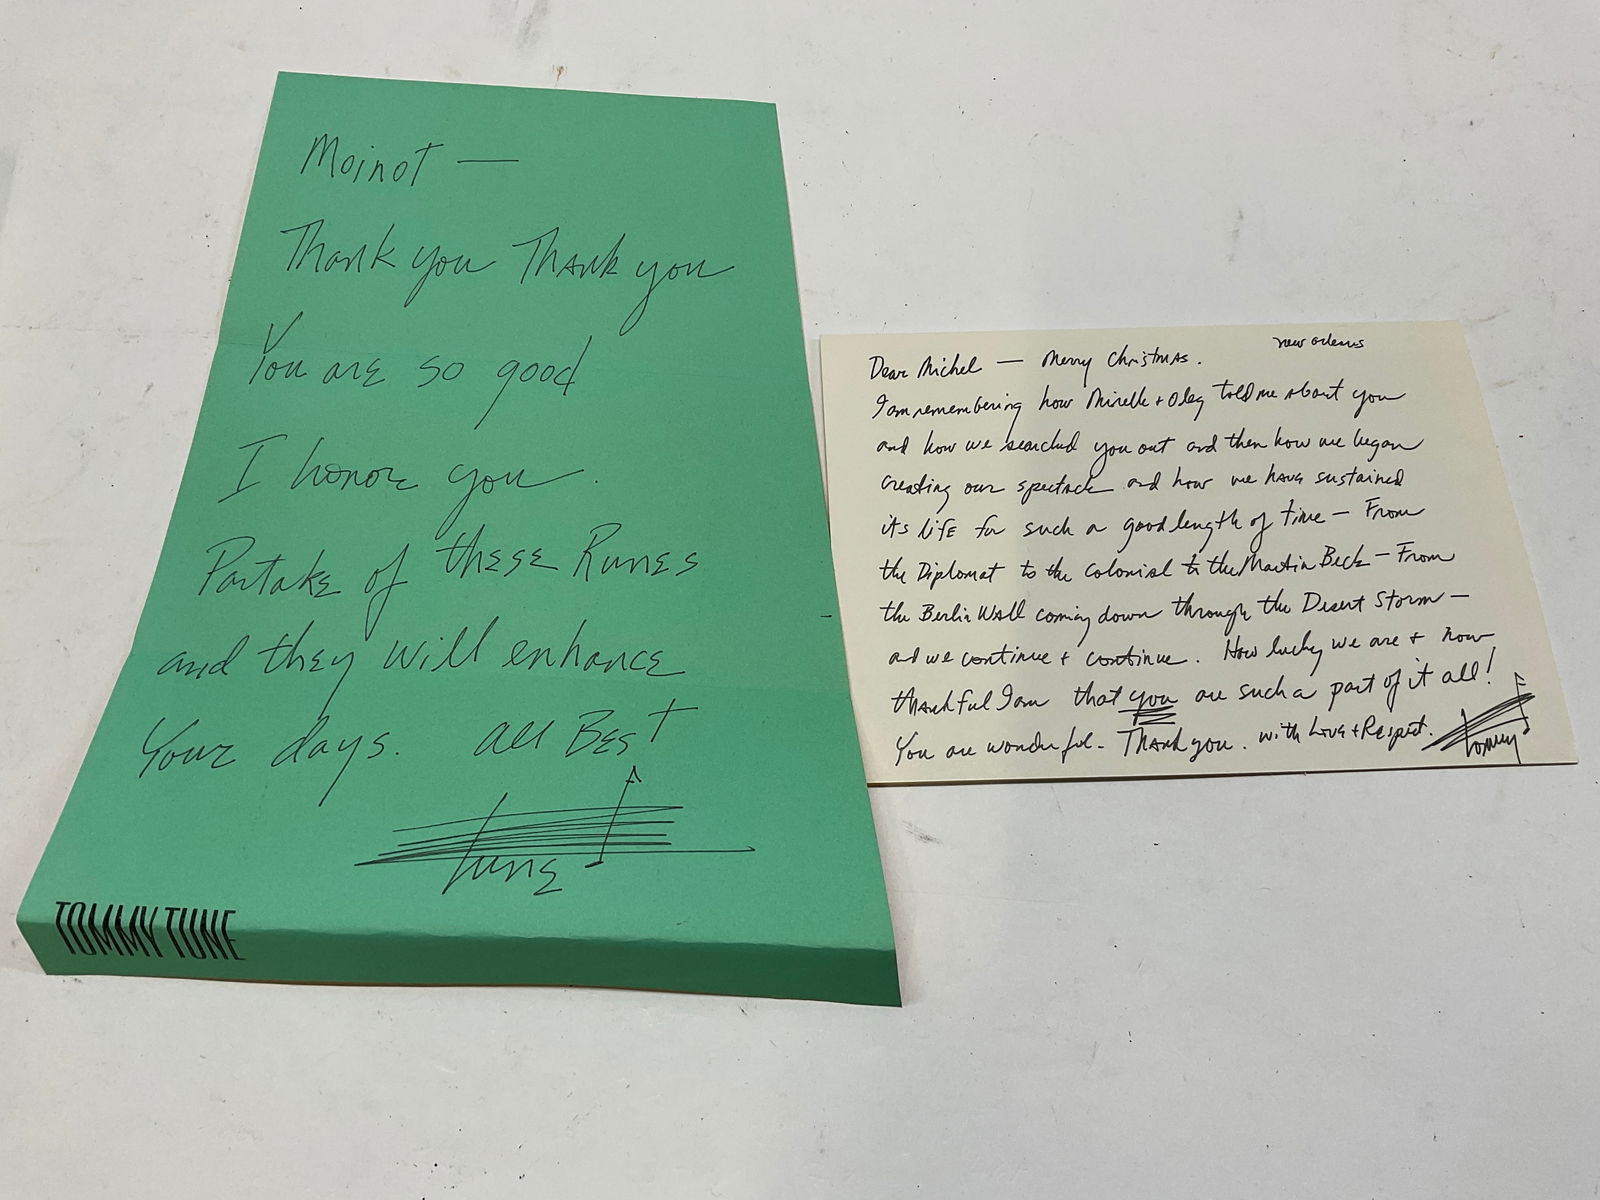 Moinot —
Thank you Thank you
You are so good
I honor you.
Partake of these Runes
and they will enhance
Your days. All Best
Tune
TOMMY TUNE
New Orleans
Dear Michel — Merry Christmas.
I am remembering how Mirelle + Oleg told me about you
and how we searched you out and then how we began
creating our spectacle and how we have sustained
its life for such a good length of time — From
the Diplomat to the Colonial to the Martin Beck — From
the Berlin Wall coming down through the Desert Storm —
and we continue + continue. How lucky we are + how
thankful I am that you are such a part of it all!
You are wonderful. Thank you. with Love + Respect.
Tommy